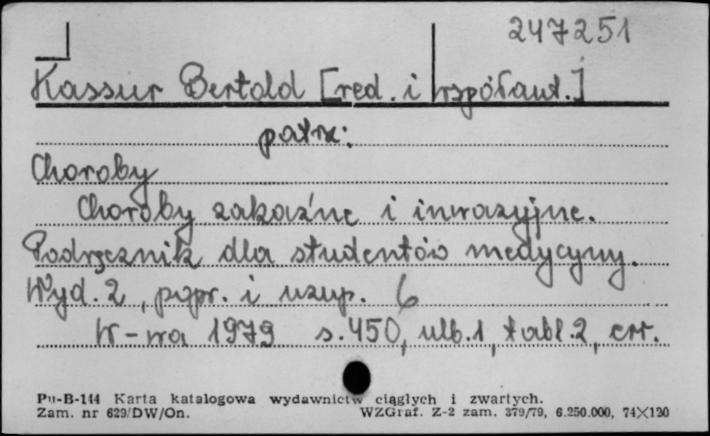 247251
Kassur Bertold [red. i współaut.]
patrz:
Choroby
Choroby zakaźne i inwazyjne.
Podręcznik dla studentów medycyny.
Wyd. 2, popr. i uzup. 6
W-wa 1979 s. 450, ulb. 1, tabl. 2, err.
Pu-B-144 Karta katalogowa wydawnictw ciągłych i zwartych.
Zam. nr 629/DW/On. WZGraf. Z-2 zam. 379/79, 6.250.000, 74×120